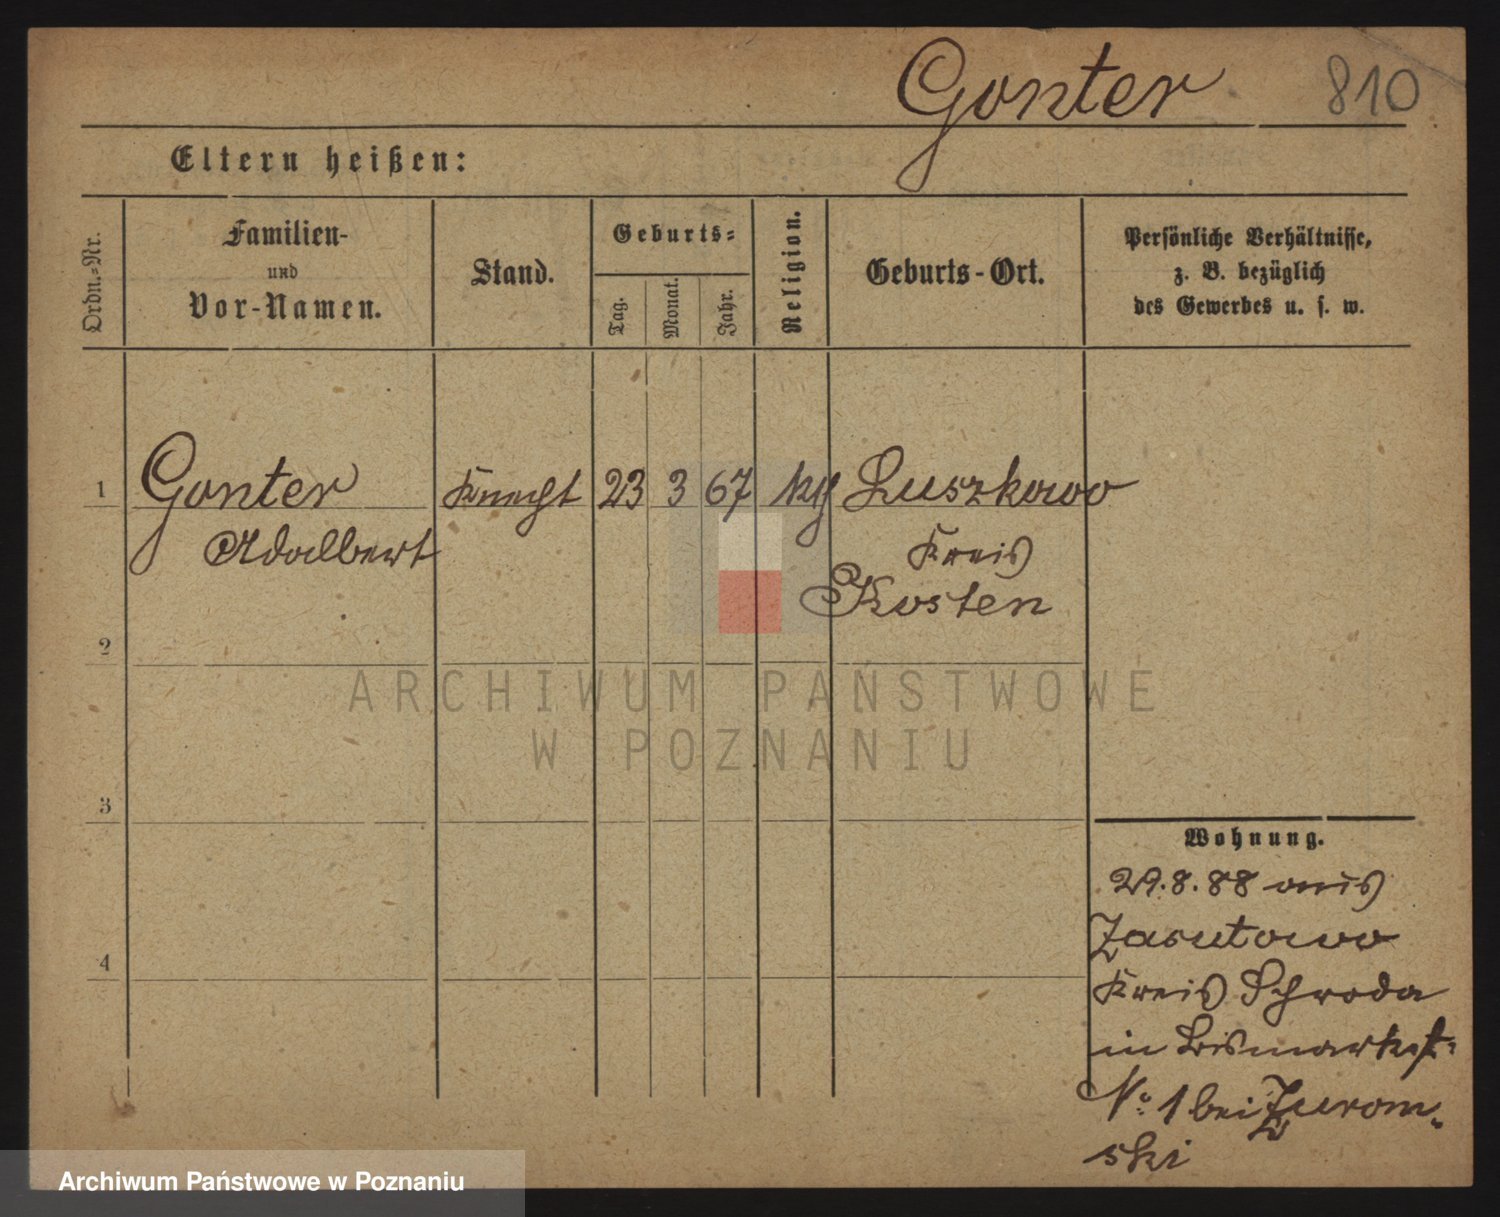 Gonter 810
Eltern heißen:
Ordn.=Nr.
Familien-
und
Vor-Namen.
Stand.
Geburts=
Tag.
Monat.
Jahr.
Religion.
Geburts-Ort.
Persönliche Verhältnisse,
z. B. bezüglich
des Gewerbes u. s. w.
1 Gonter Knecht 23 3 67 kth Luszkowo
Adalbert Kreis
Kosten
2
3
4
Wohnung.
29.8.88 aus
Zasutowo
Kreis Schroda
in Bismarkst=
No 1 bei Zurom=
ski
ARCHIWUM PAŃSTWOWE
W POZNANIU
Archiwum Państwowe w Poznaniu